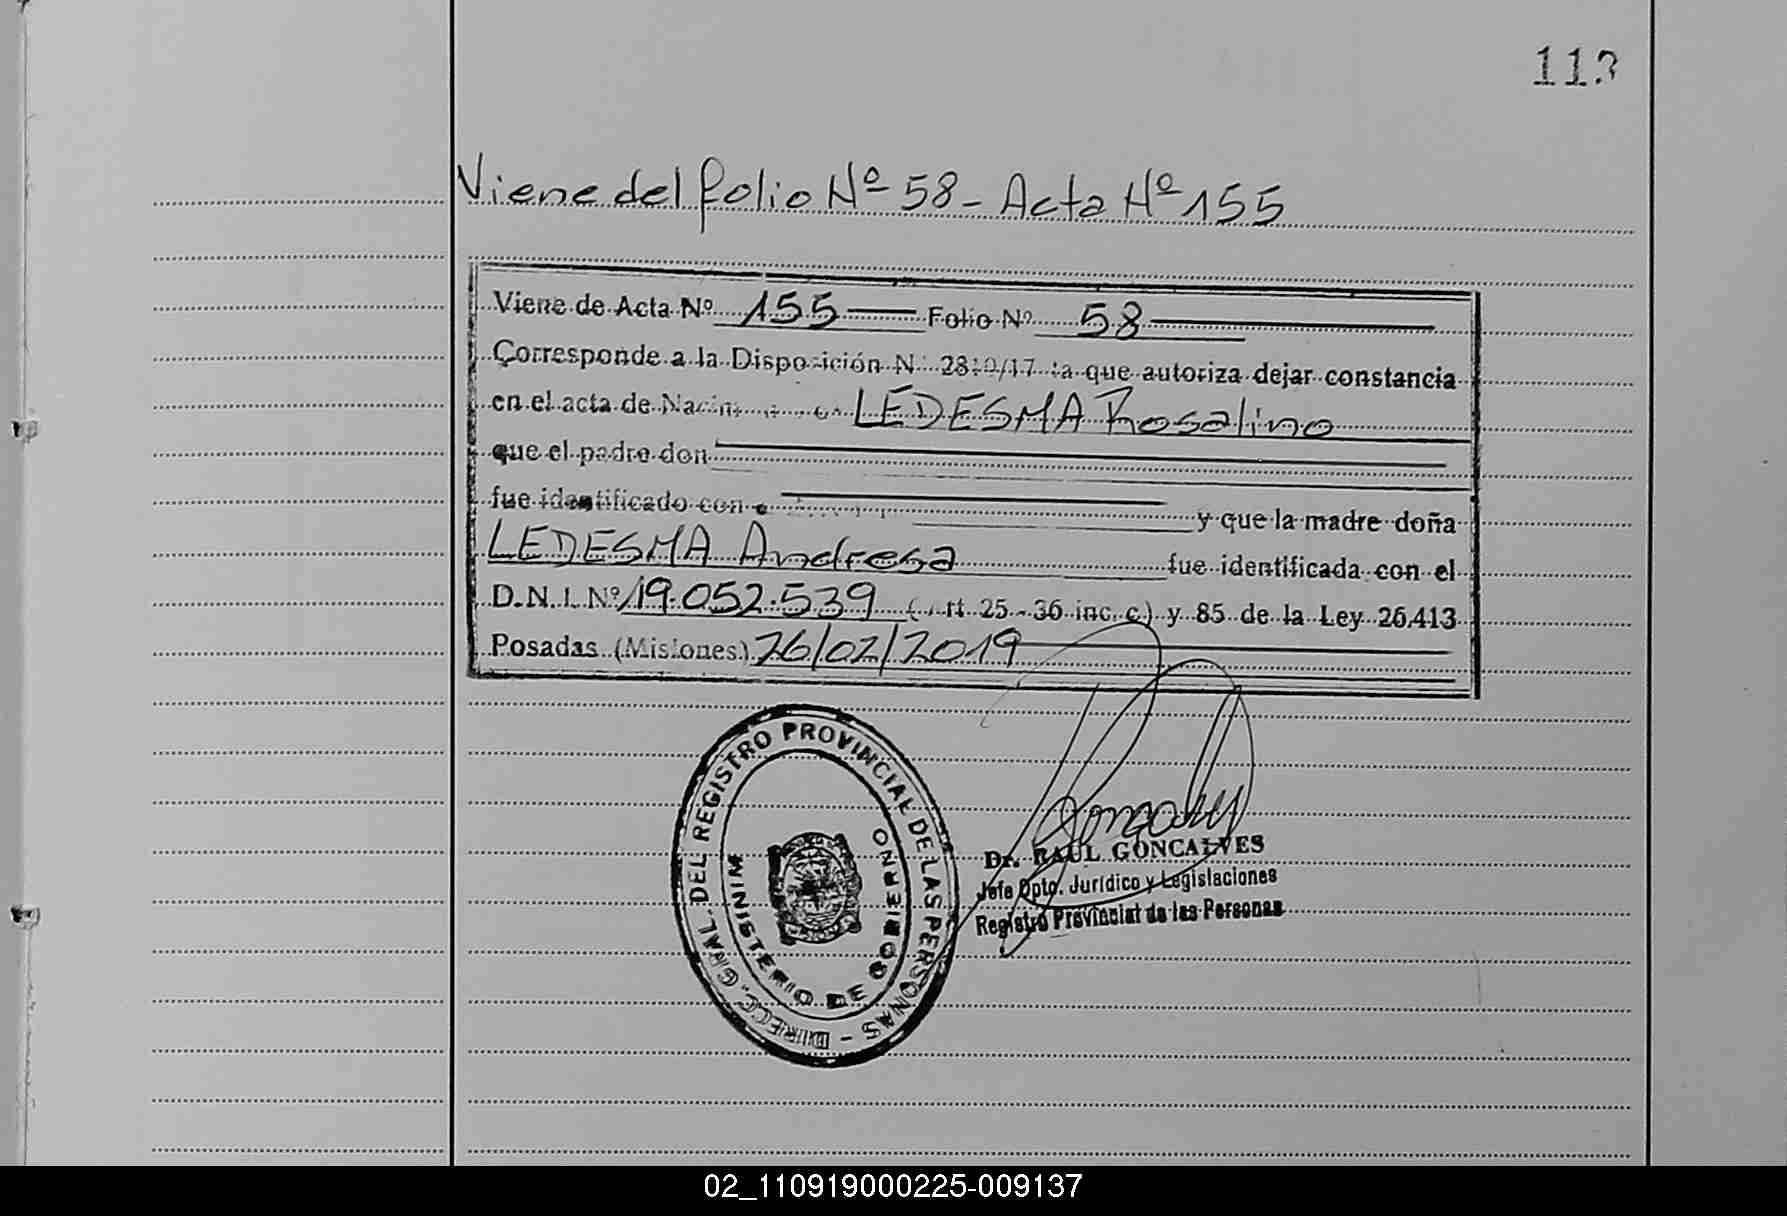 113
Viene del folio Nº 58 - Acta Nº 155
Viene de Acta Nº 155 Folio Nº 58
Corresponde a la Disposición N 2810/17 la que autoriza dejar constancia
en el acta de LEDESMA Rosalino
que el padre don
fue identificado con y que la madre doña
LEDESMA Andresa fue identificada con el
D.N.I. Nº 19.052.539 (Art 25 - 36 inc. c) y 85 de la Ley 26.413
Posadas (Misiones) 26/02/2019
DIRECC. GRAL. DEL REGISTRO PROVINCIAL DE LAS PERSONAS -
MINISTERIO DE GOBIERNO
Dr. RAUL GONCALVES
Jefe Dpto. Jurídico y Legislaciones
Registro Provincial de las Personas
02_110919000225-009137